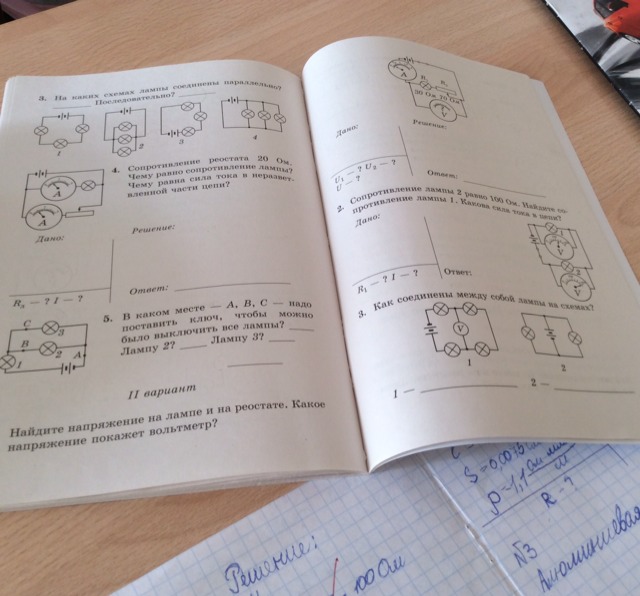 3. На каких схемах лампы соединены параллельно?
Последовательно?
1
2
3
4
4. Сопротивление реостата 20 Ом.
Чему равно сопротивление лампы?
Чему равна сила тока в неразвет-
вленной части цепи?
A
A
Дано:
Решение:
Ответ:
Rл — ? I — ?
5. В каком месте — А, В, С — надо
поставить ключ, чтобы можно
было выключить все лампы?
Лампу 2? Лампу 3?
C
3
B
2
A
1
II вариант
Найдите напряжение на лампе и на реостате. Какое
напряжение покажет вольтметр?
A
30 Ом 70 Ом
V
Дано:
Решение:
U1 — ? U2 — ?
U — ?
Ответ:
2. Сопротивление лампы 2 равно 100 Ом. Найдите со-
противление лампы 1. Какова сила тока в цепи?
Дано:
R1 — ? I — ?
Ответ:
V
V
3. Как соединены между собой лампы на схемах?
V
1
2
1 —
2 —
R — ?
№3
Алюминиевая
Решение:
100 Ом